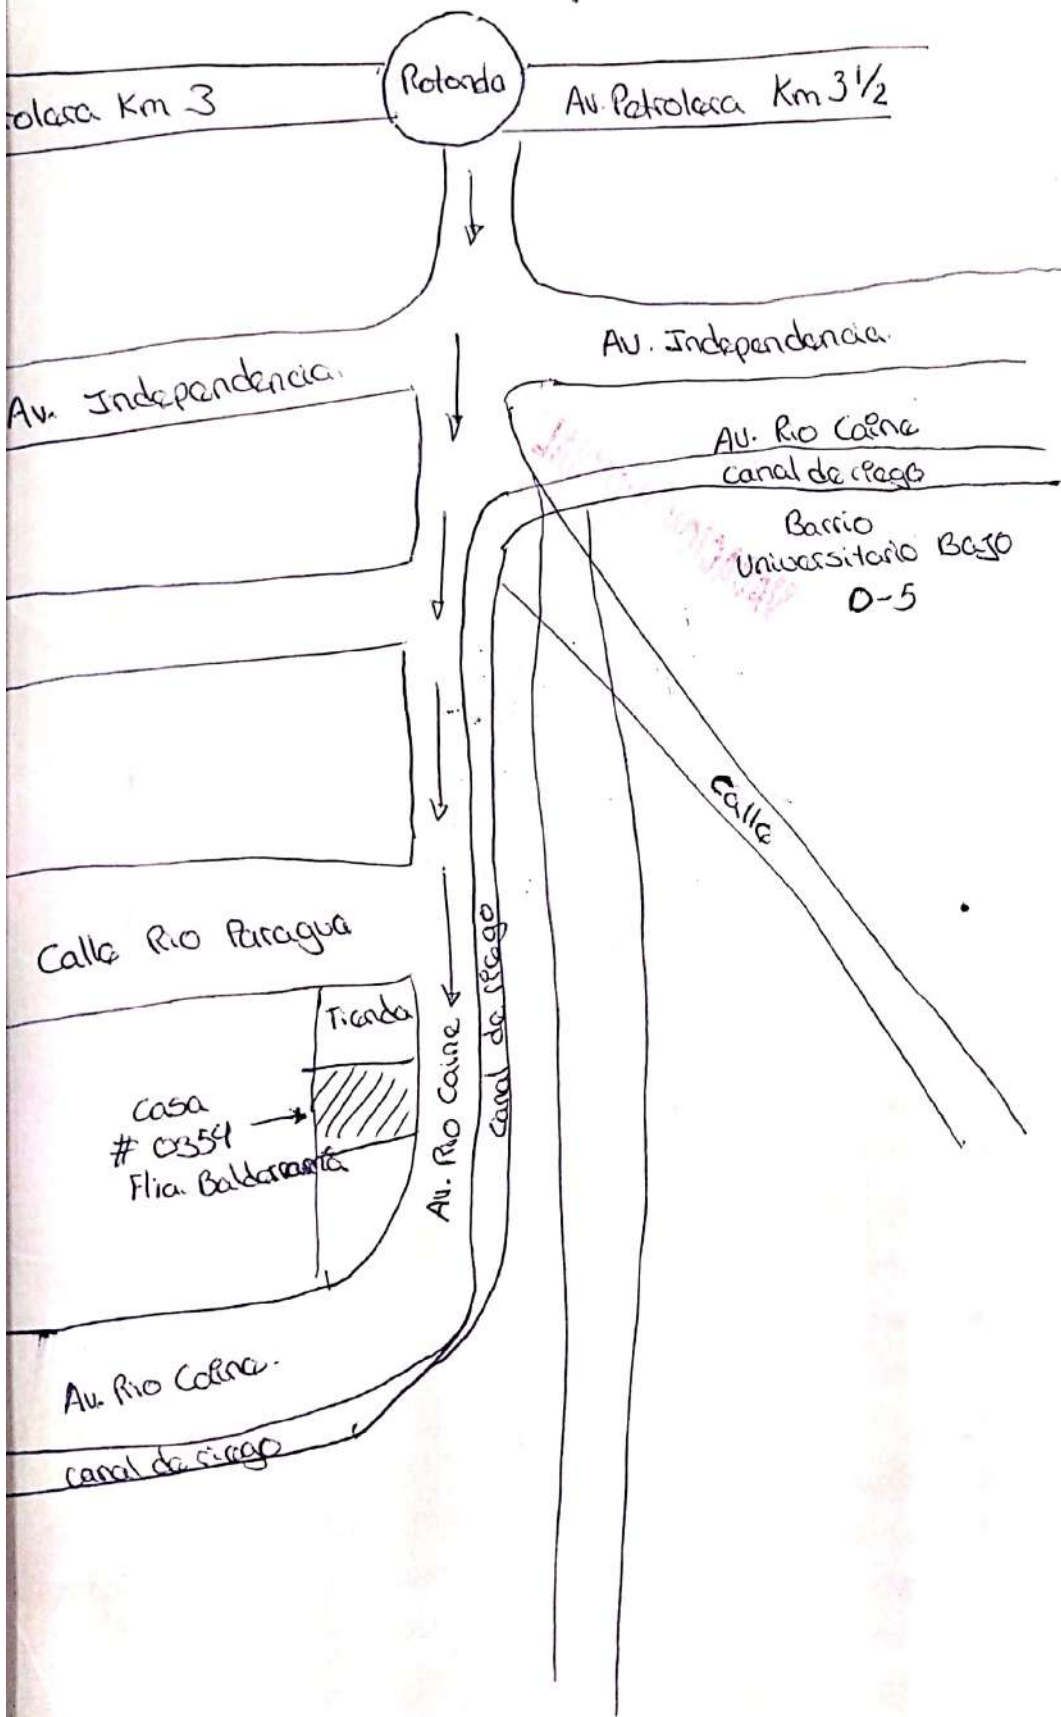 Rotonda
olera Km 3
Av. Petrolera Km 3 1/2
Av. Independencia.
Av. Independencia.
Av. Rio Caine
canal de riego
Barrio
Universitario Bajo
D-5
Calle
Calle Rio Paragua
Tienda
Casa
# 0354
Flia. Balderrama
Av. Rio Caine
Canal de riego
Av. Rio Caine.
canal de riego